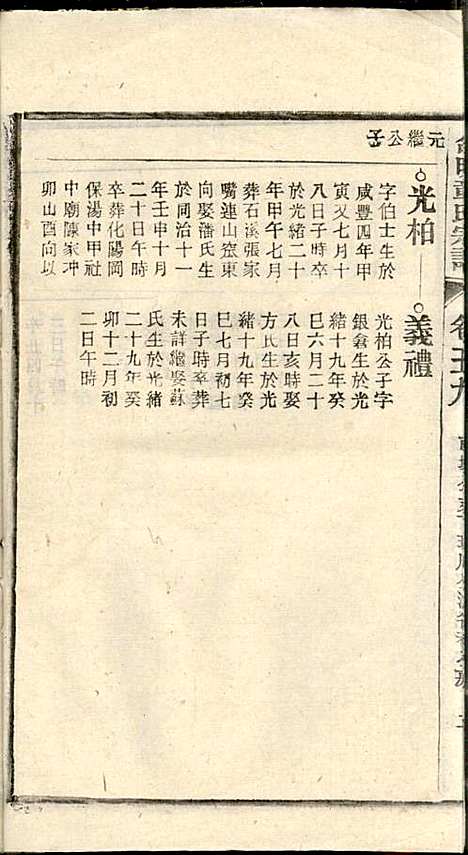 元繼公子
光柏
字伯士生於
咸豐四年甲
寅又七月十
八日子時卒
於光緒二十
年甲午七月
葬石溪張家
嘴連山窊東
向娶潘氏生
於同治十一
年壬申十月
二十日午時
卒葬化陽岡
保湯中甲社
中廟陳家冲
卯山酉向以
義禮
光柏公子字
銀倉生於光
緒十九年癸
巳六月二十
八日亥時娶
方氏生於光
緒十九年癸
巳七月初七
日子時卒葬
未詳繼娶蘇
氏生於光緒
二十九年癸
卯十二月初
二日午時